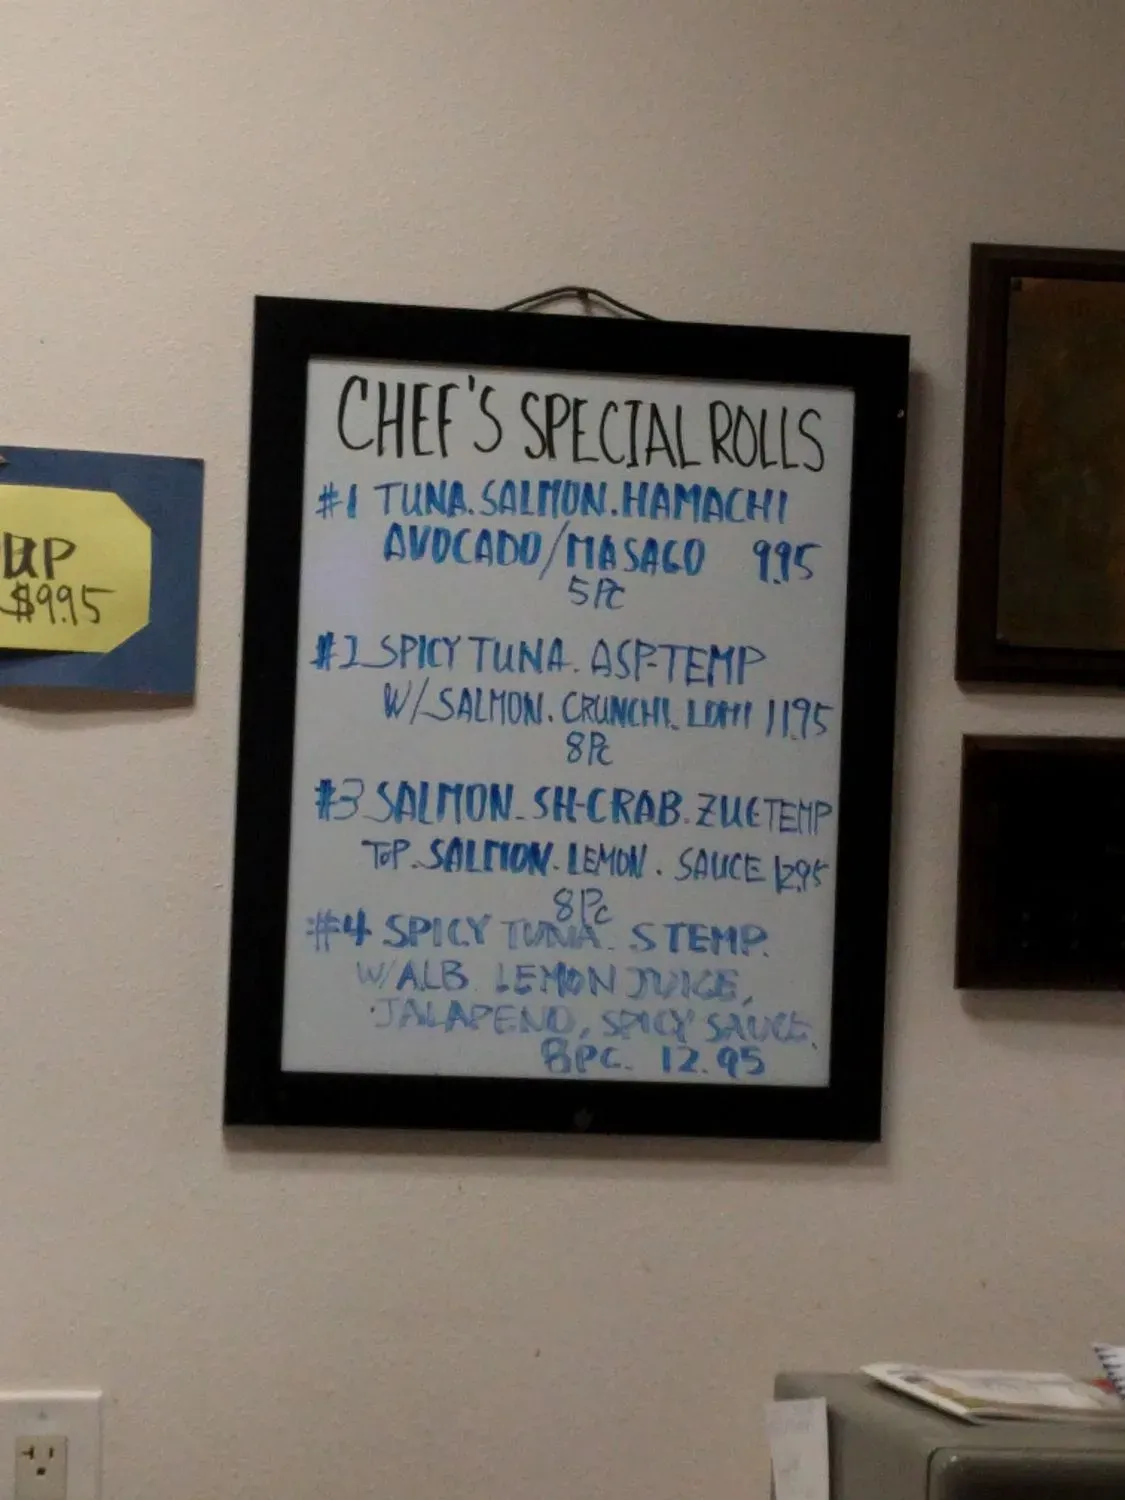 CHEF'S SPECIAL ROLLS
#1 TUNA. SALMON. HAMACHI
AVOCADO/MASAGO 9.95
5 Pc
#2 SPICY TUNA. ASP-TEMP
W/SALMON. CRUNCHI. 11.95
8 Pc
#3 SALMON. SH-CRAB. TEMP
TOP. SALMON. LEMON. SAUCE 12.95
8 Pc
#4 SPICY TUNA. S TEMP.
W/ALB. LEMON JUICE,
JALAPENO, SPICY SAUCE.
8PC. 12.95
UP
$9.95